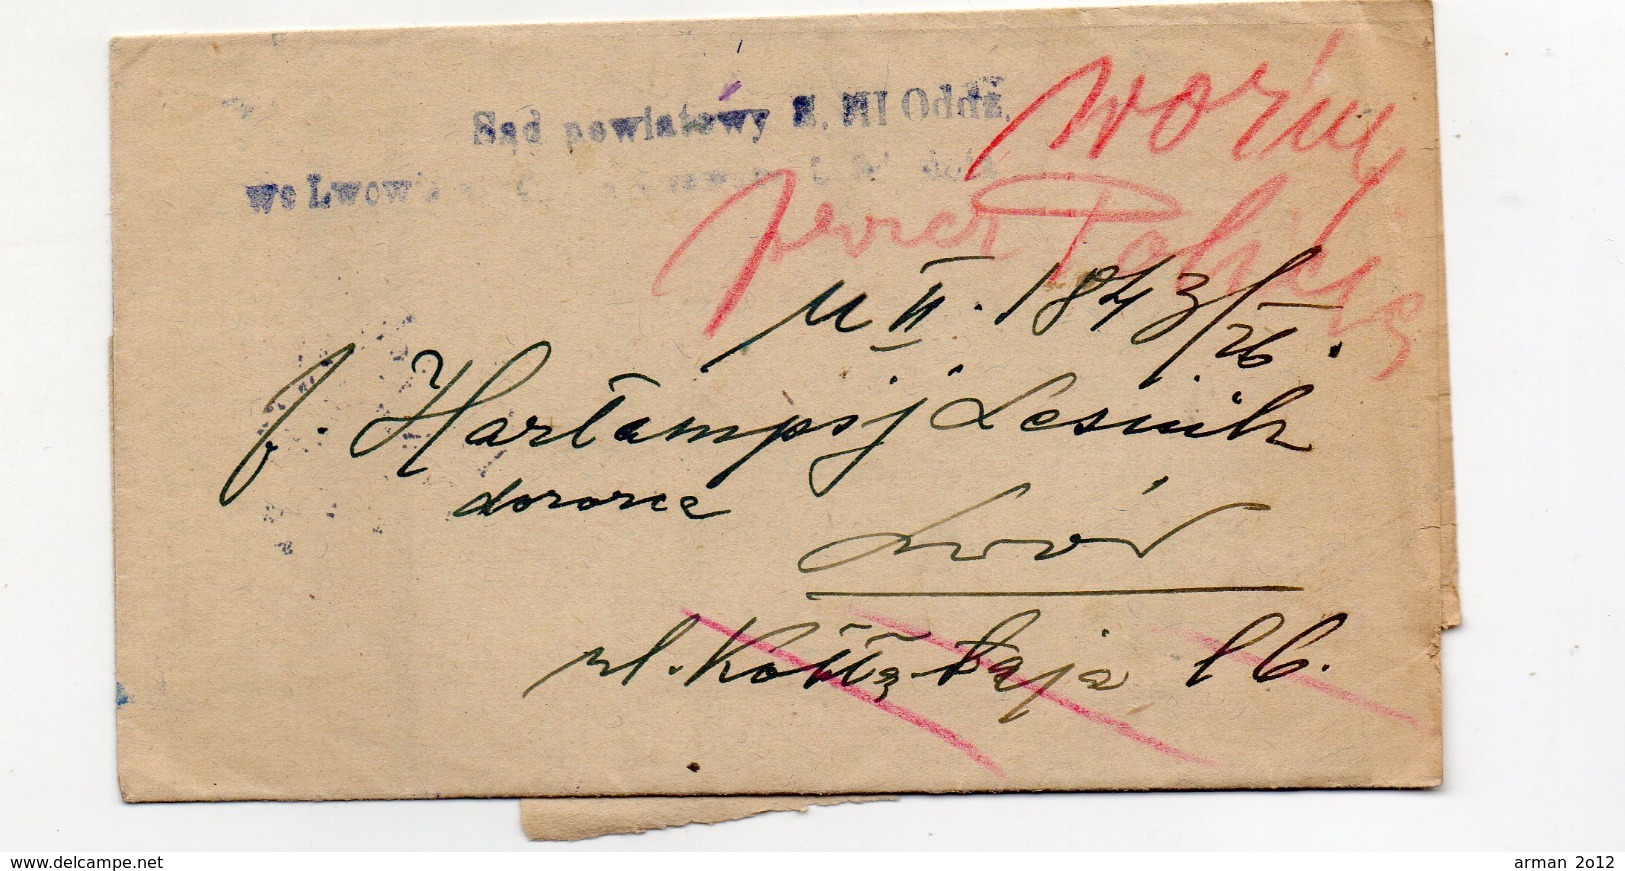 Sąd powiatowy S. III Oddz.
we Lwow
przez Policję
U II. 1843/26.
J. Harłampij Lesiuk
dozorca
Lwów
ul. Kołłątaja l 6.
www.delcampe.net
arman 2012